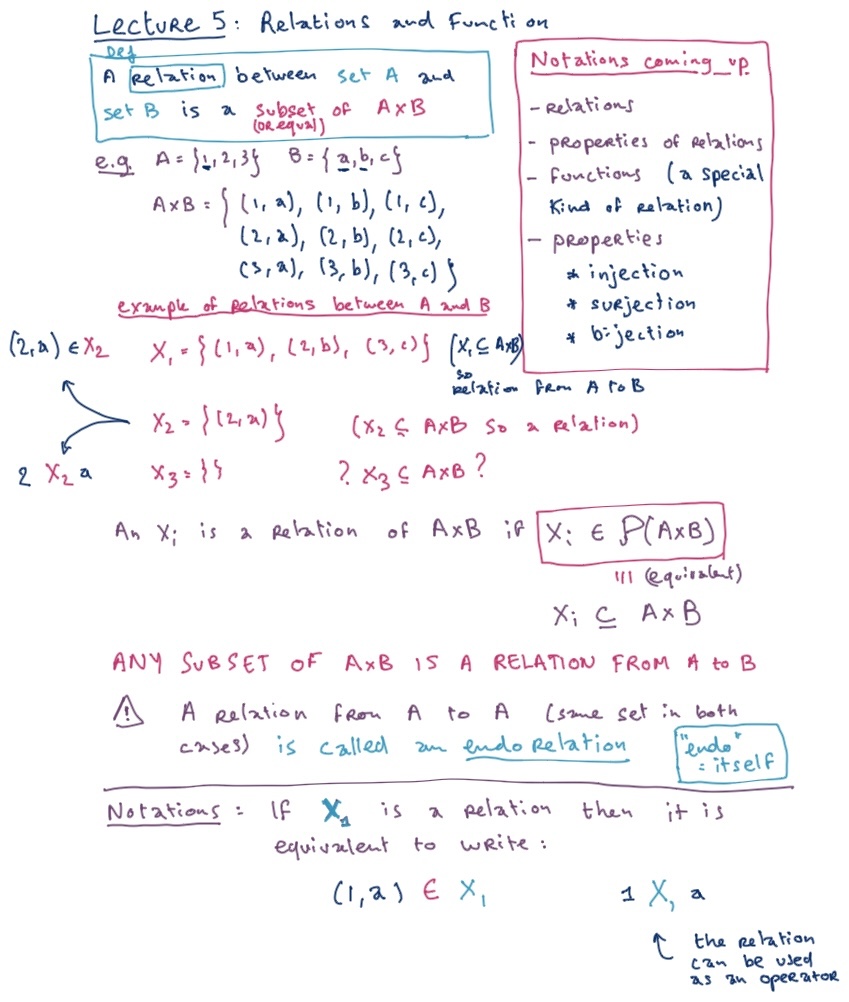 Lecture 5: Relations and Function
Def
A relation between set A and
set B is a subset of A×B
(OR equal)
e.g. A = {1,2,3} B = {a,b,c}
A×B = { (1, a), (1, b), (1, c),
(2, a), (2, b), (2, c),
(3, a), (3, b), (3, c) }
Notations coming up
- relations
- properties of relations
- functions (a special
kind of relation)
- properties
* injection
* surjection
* bijection
example of relations between A and B
(2, a) ∈ X₂
X₁ = {(1, a), (2, b), (3, c)} (X₁ ⊆ A×B)
so
relation from A to B
X₂ = {(2, a)} (X₂ ⊆ A×B so a relation)
2 X₂ a
X₃ = {} ? X₃ ⊆ A×B ?
An Xᵢ is a relation of A×B if Xᵢ ∈ P(A×B)
III (equivalent)
Xᵢ ⊆ A×B
ANY SUBSET OF A×B IS A RELATION FROM A to B
⚠ A relation from A to A (same set in both
cases) is called an endorelation
"endo"
= itself
Notations: If X₁ is a relation then it is
equivalent to write:
(1, a) ∈ X₁ 1 X₁ a
the relation
can be used
as an operator